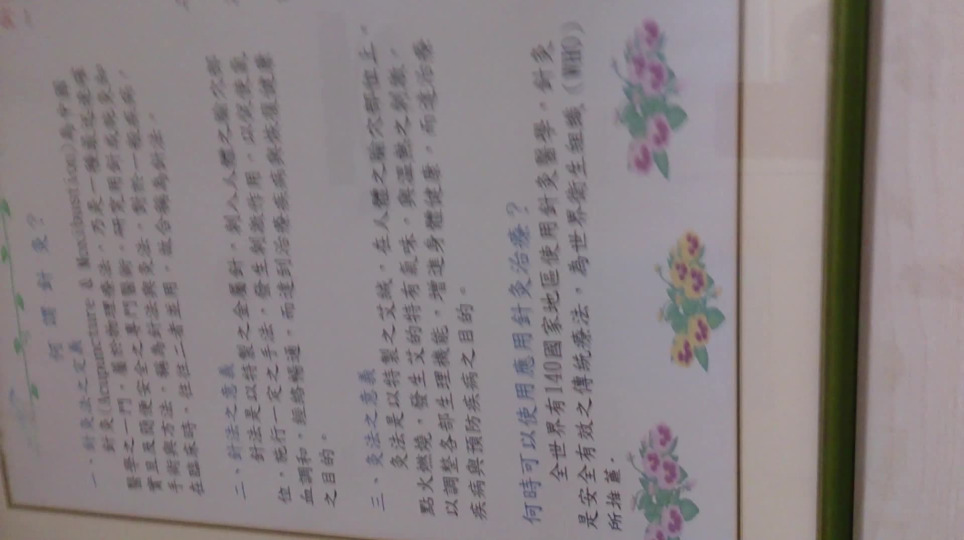 何謂針灸?
一、針灸法之定義
針灸(Acupuncture & Moxibustion)為中國
醫學之一門,屬於物理療法,乃是一種最迅速確
實且及簡便安全之專門醫術。研究用針或用灸知
手術與方法,稱為針法與灸法,對於一般疾病,
在臨床時,往往二者並用,故合稱為針法。
二、針法之意義
針法是以特製之金屬針,刺入人體之腧穴部
位,施行一定之手法,發生刺激作用,以促使氣
血調和,經絡暢通,而達到治療疾病與恢復健康
之目的。
三、灸法之意義
灸法是以特製之艾絨,在人體之腧穴部位上,
點火燃燒,發生艾的特有氣味,與溫熱之刺激,
以調整各部生理機能,增進身體健康,而達治療
疾病與預防疾病之目的。
何時可以使用應用針灸治療?
全世界有140國家地區使用針灸醫學,針灸
是安全有效之傳統療法,為世界衛生組織(WHO)
所推薦。